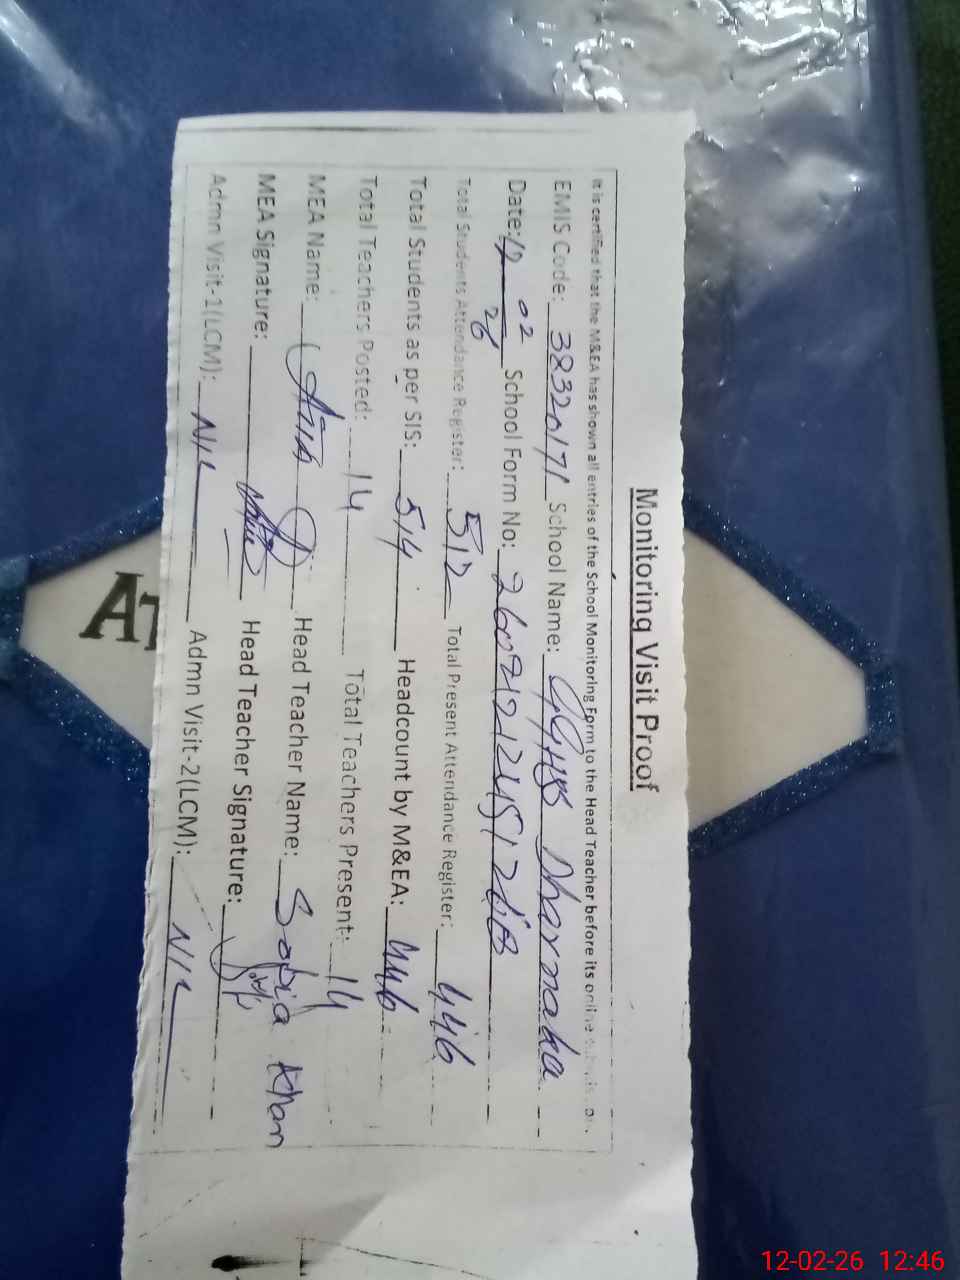 Monitoring Visit Proof
It is certified that the M&EA has shown all entries of the School Monitoring Form to the Head Teacher before its online
EMIS Code: 38320171 School Name: GGHSS Dharnaka
Date: 12 02 26 School Form No:
Total Students Attendance Register: 512 Total Present Attendance Register: 446
Total Students as per SIS: 514 Headcount by M&EA: 446
Total Teachers Posted: 14 Total Teachers Present: 14
MEA Name: Head Teacher Name: Sobia Khan
MEA Signature: Head Teacher Signature:
Admn Visit-1(LCM): NIL Admn Visit-2(LCM): NIL
AT
12-02-26 12:46